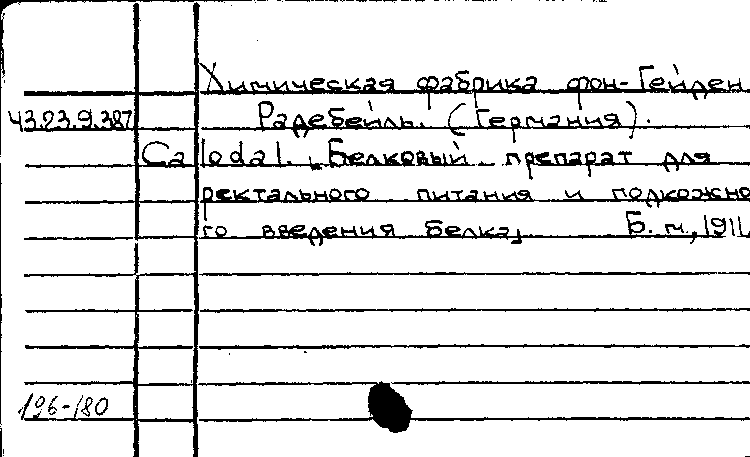 Химическая фабрика фон-Гейден
43.23.9.387 Радебейль. (Германия).
Calodal. „Белковый препарат для
ректального питания и подкожно
го введения белка„ Б. м., 1911.
196-180